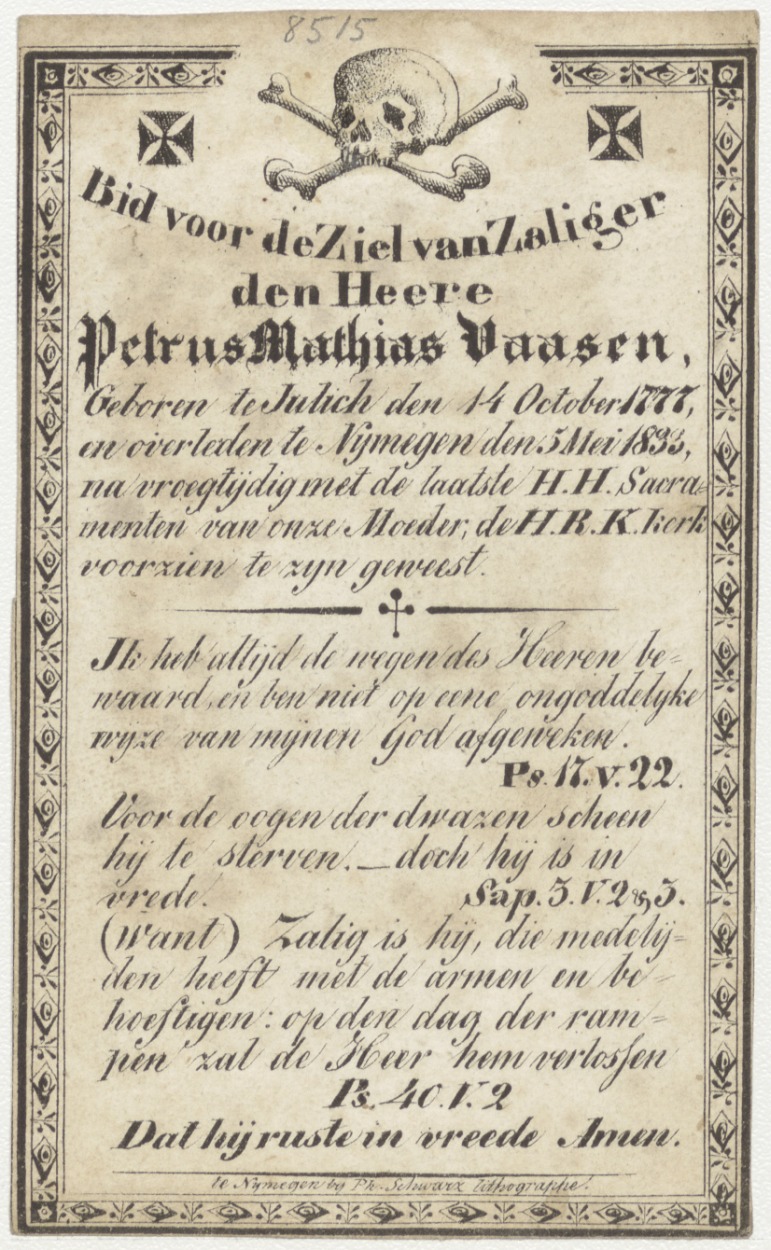 8515
Bid voor de Ziel van Zaliger
den Heere
Petrus Mathias Vaasen,
Geboren te Julich den 14 October 1777,
en overleden te Nymegen den 5 Mei 1833,
na vroegtijdig met de laatste H.H. Sacra-
menten van onze Moeder, de H.R.K. kerk
voorzien te zyn geweest.
Ik heb altijd de wegen des Heeren be-
waard, en ben niet op eene ongoddelyke
wyze van mijnen God afgeweken.
Ps. 17. V. 22.
Voor de oogen der dwazen scheen
hij te sterven. _ doch hij is in
vrede. Sap. 3. V. 2 & 3.
(Want) Zalig is hij, die medelij-
den heeft met de armen en be-
hoeftigen: op den dag der ram-
pen zal de Heer hem verlossen
Ps. 40. V. 2
Dat hij ruste in vreede Amen.
te Nymegen by Ph. Schwarz lithographe.